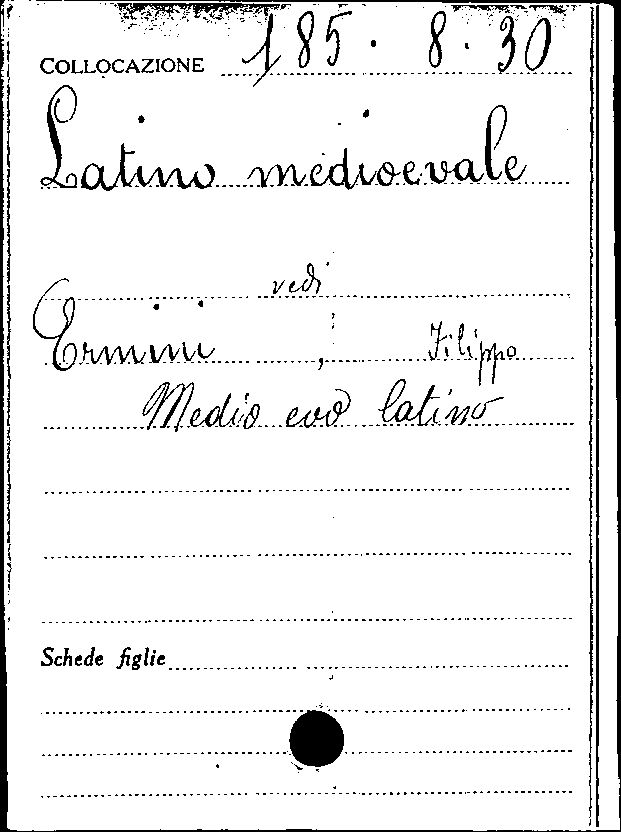 COLLOCAZIONE 185. 8. 30
Latino medioevale
vedi
Ermini, Filippo
Medio evo latino
Schede figlie